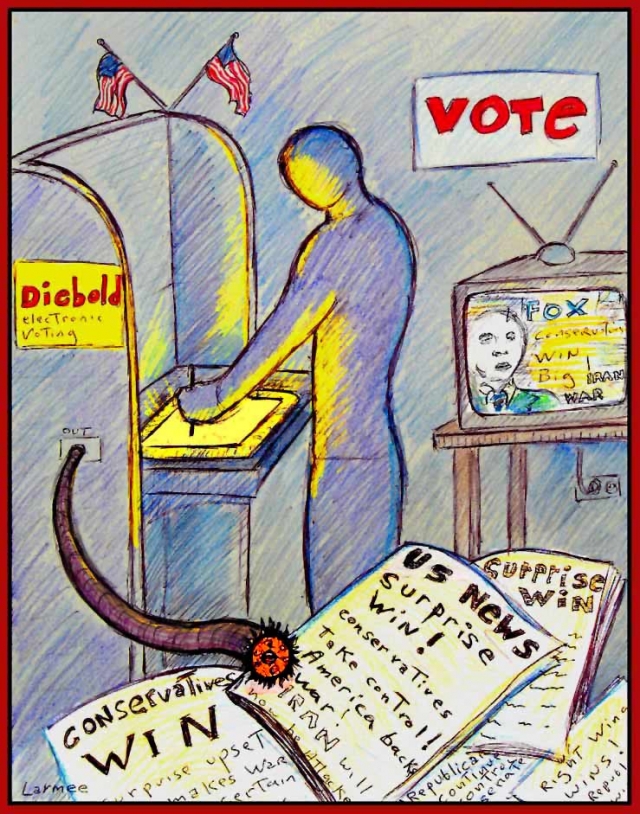 VOTE
Diebold
electronic
Voting
OUT
FOX
conservatives
WIN
Big
IRAN
WAR
US NEWS
Surprise
WIN!
conservatives
Take control!
America back
War!
IRAN will
now be
Surprise
WIN
conservatives
WIN
surprise upset
makes War
certain
Republicans
continue
control
senate
Right Wing
WINS!
Larmee